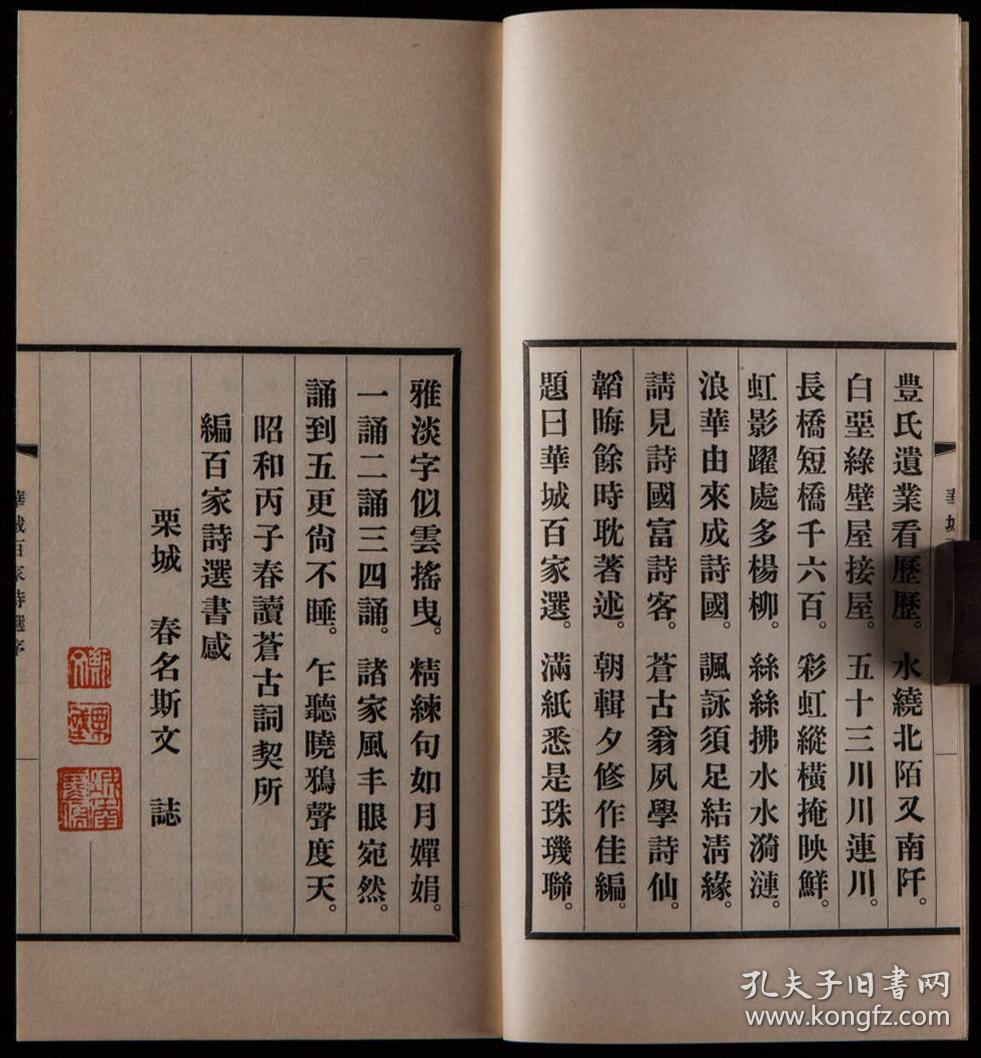 豊氏遺業看歷歷。水繞北陌又南阡。
白堊綠壁屋接屋。五十三川川連川。
長橋短橋千六百。彩虹縱橫掩映鮮。
虹影躍處多楊柳。絲絲拂水水漪漣。
浪華由來成詩國。諷詠須足結淸緣。
請見詩國富詩客。蒼古翁夙學詩仙。
韜晦餘時耽著述。朝輯夕修作佳編。
題曰華城百家選。滿紙悉是珠璣聯。
雅淡字似雲搖曳。精練句如月嬋娟。
一誦二誦三四誦。諸家風丰眼宛然。
誦到五更尙不睡。乍聽曉鴉聲度天。
昭和丙子春讀蒼古詞契所
編百家詩選書感
栗城 春名斯文 誌
華城百家詩選序
華城
孔夫子旧书网
www.kongfz.com